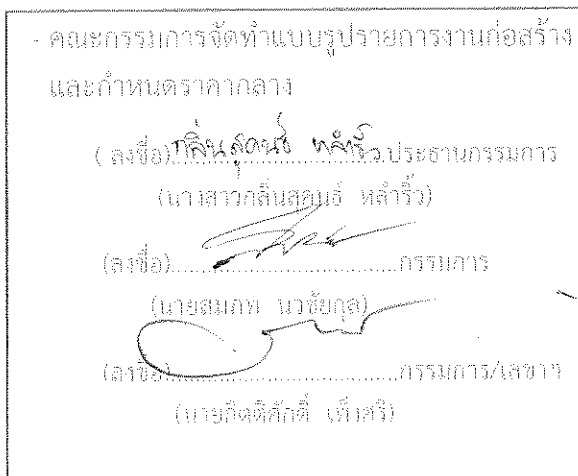 - คณะกรรมการจัดทำแบบรูปรายการงานก่อสร้าง
และกำหนดราคากลาง
(ลงชื่อ)กลิ่นสุคนธ์ หลำริ้ว.ประธานกรรมการ
(นางสาวกลิ่นสุคนธ์ หลำริ้ว)
(ลงชื่อ)........................................กรรมการ
(นายสมภพ นวชัยกุล)
(ลงชื่อ)........................................กรรมการ/เลขาฯ
(นายกิตติศักดิ์ เพ็งศรี)